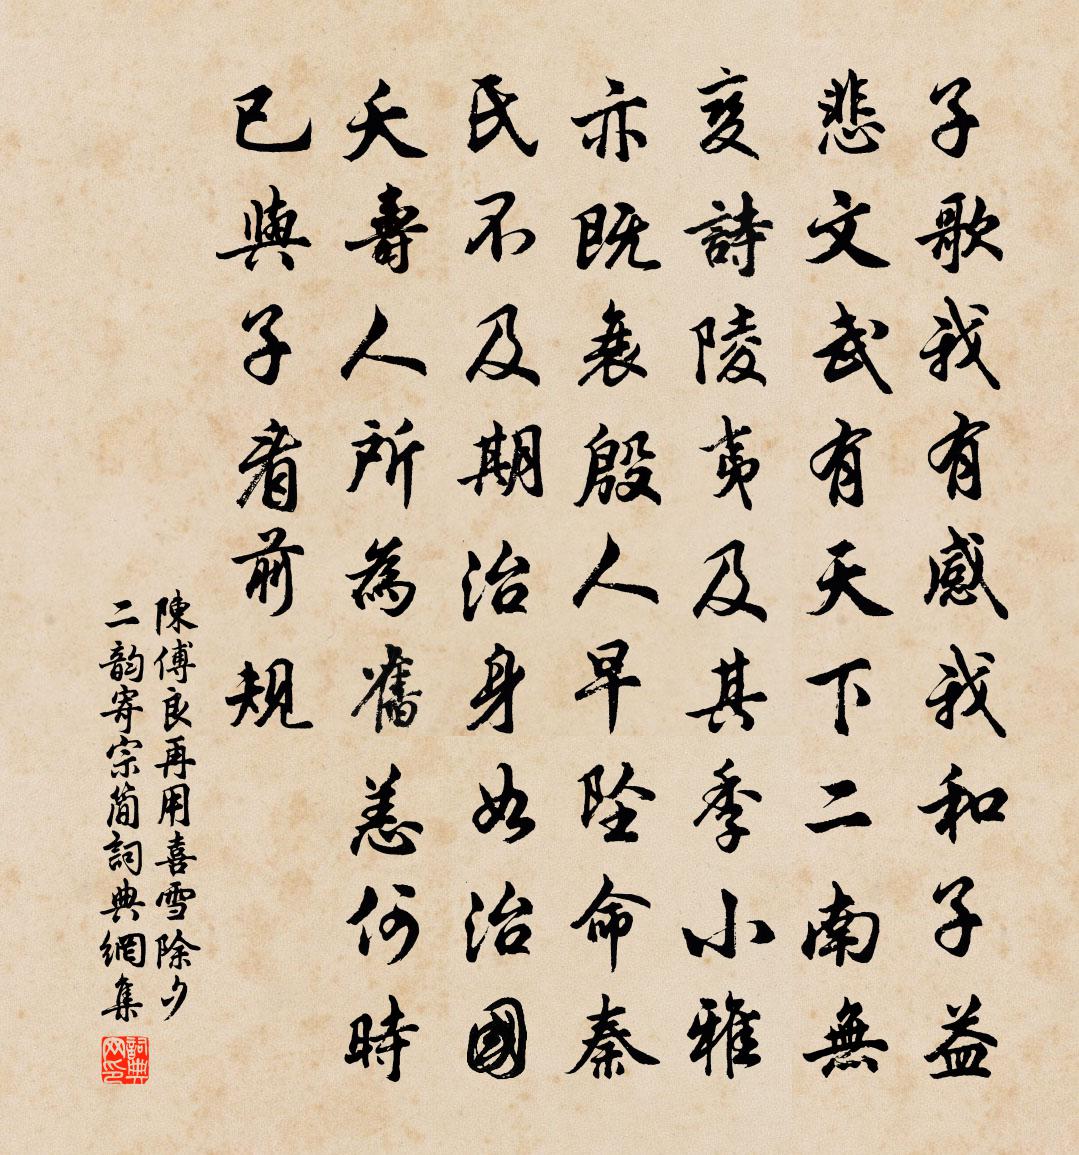 子歌我有感我和子益
悲文武有天下二南無
變詩陵夷及其季小雅
亦既衰殷人早墜命秦
氏不及期治身如治國
夭壽人所為舊恙何時
已與子看前規
陳傅良再用喜雪除夕
二韵寄宗簡詞典網集
詞典网印